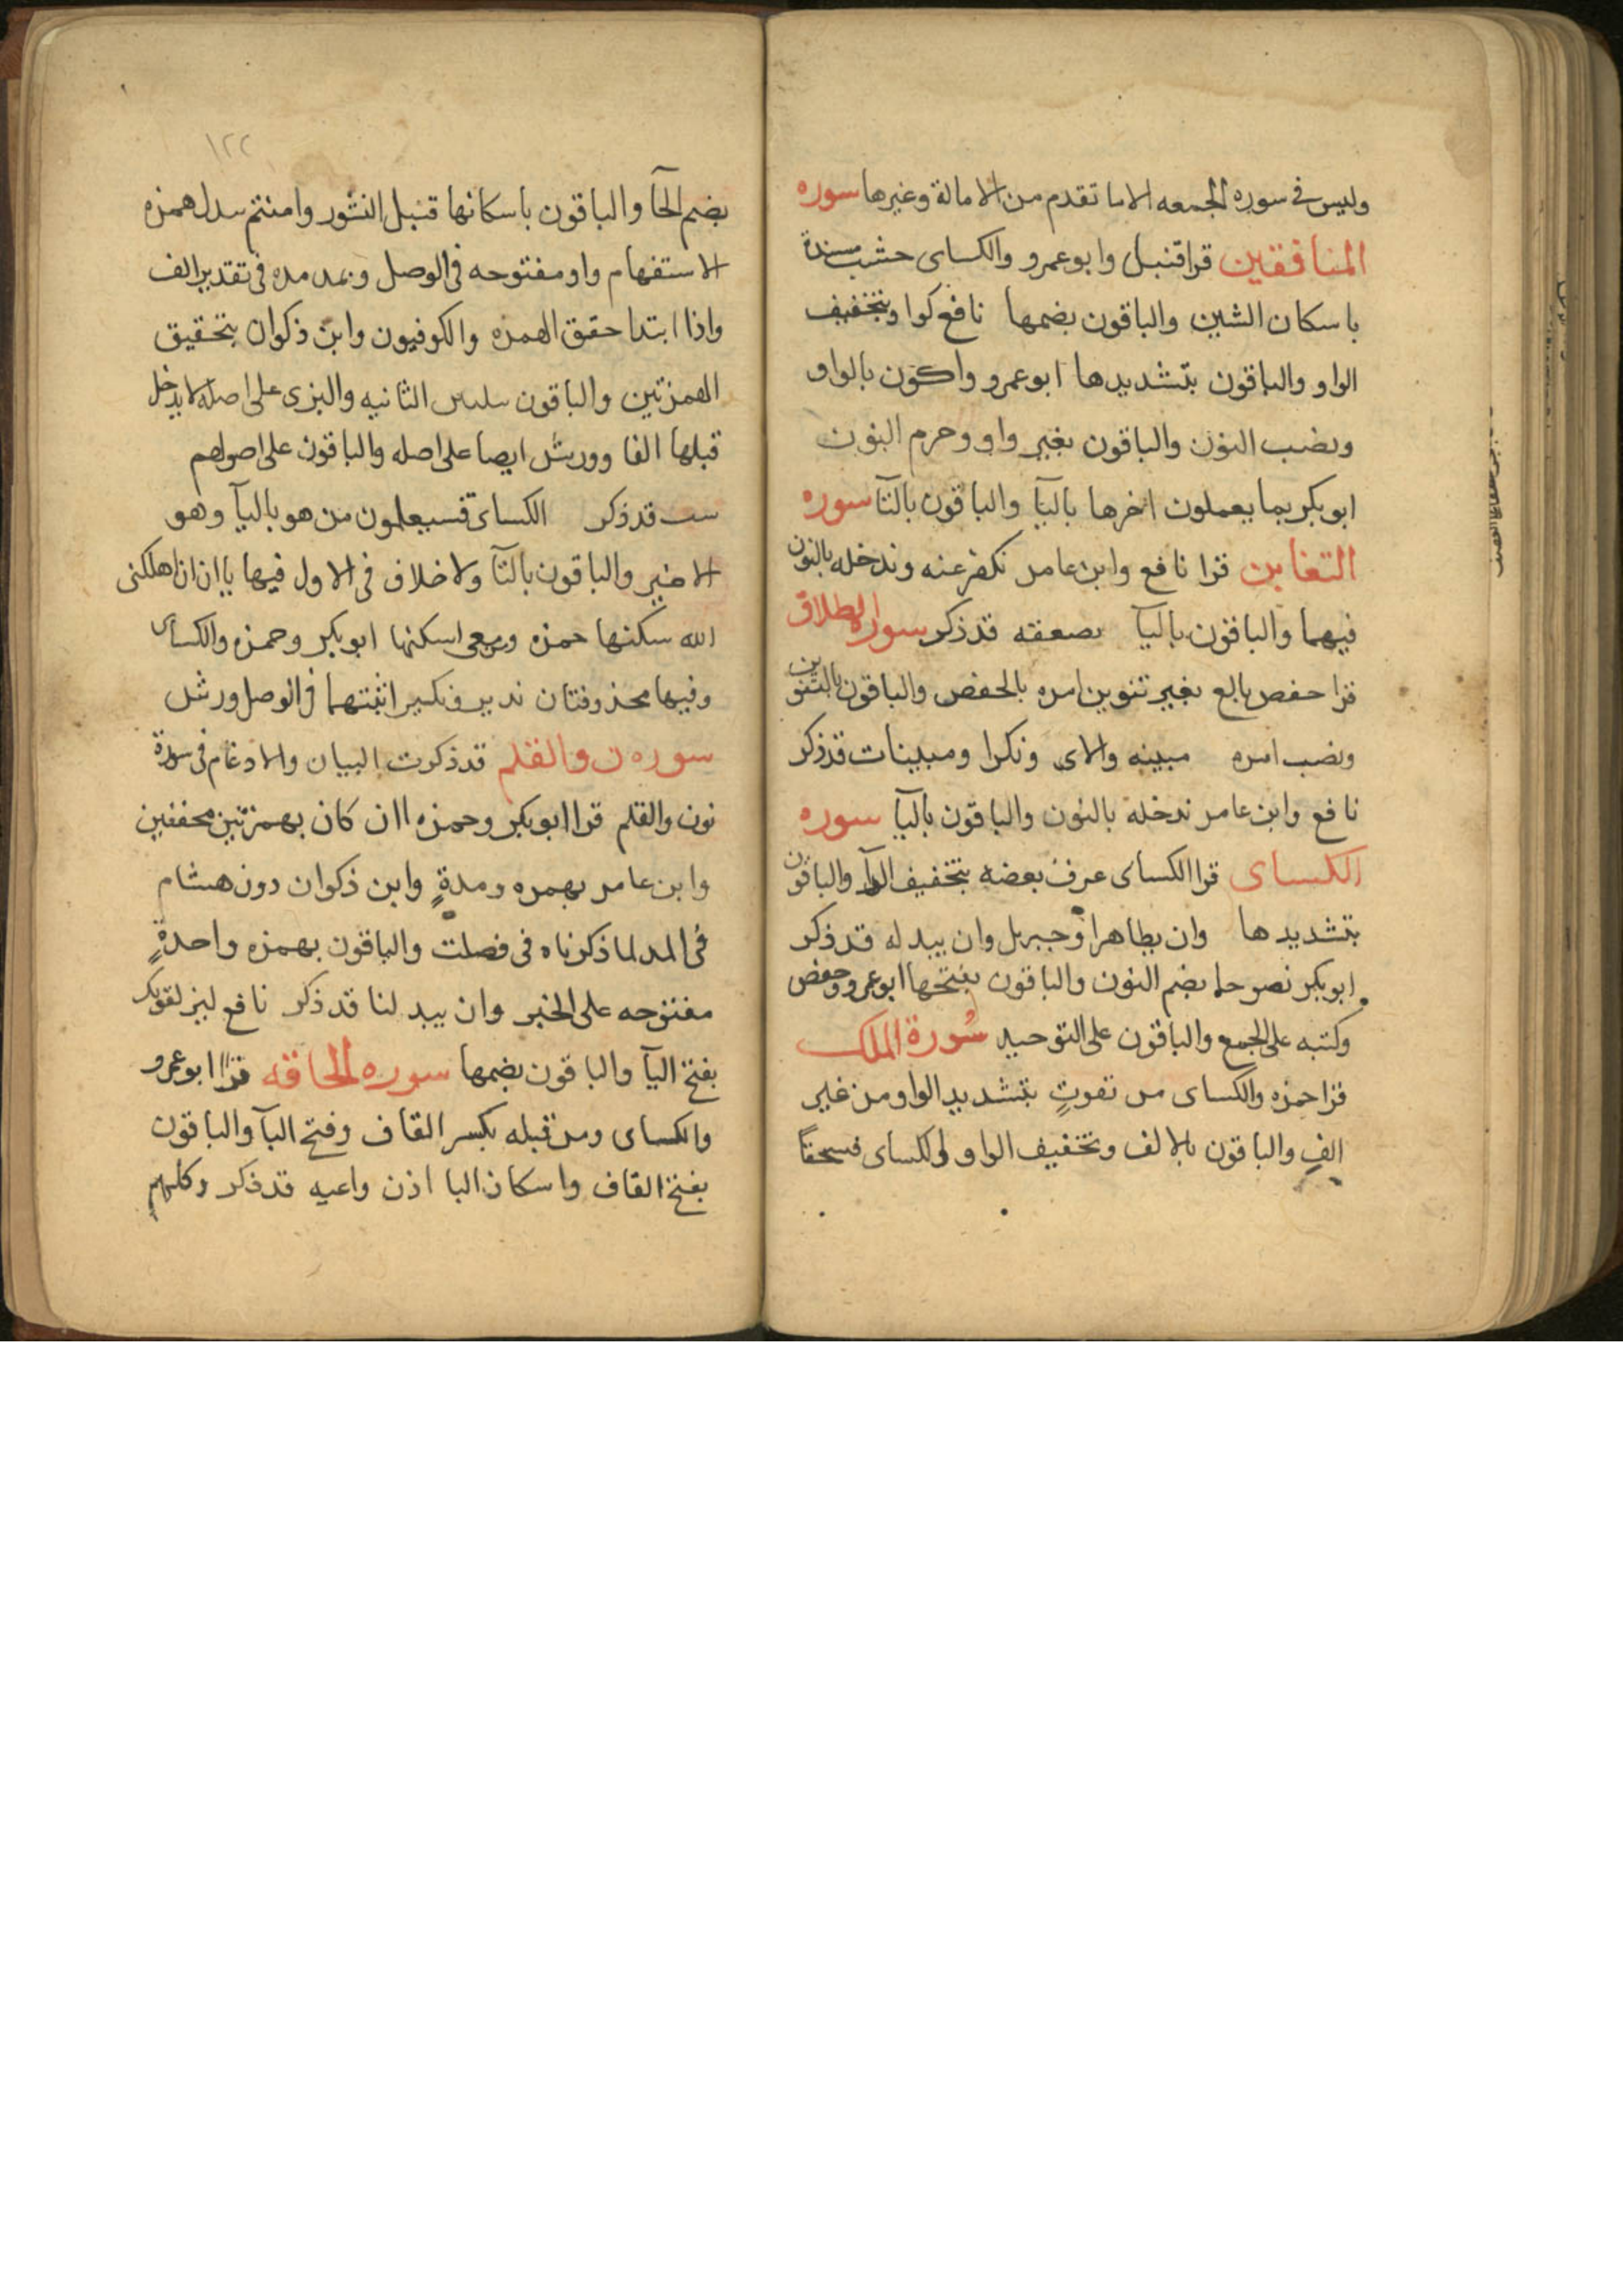 وليس في سوره الجمعه الا ما تقدم من الامالة وغيرها سوره
المنافقين قرا قنبل وابوعمرو والكساى خشب مسندة
باسكان الشين والباقون بضمها نافع لووا بتخفيف
الواو والباقون بتشديدها ابوعمرو واكون بالواو
ونصب النون والباقون بغير واو وجزم النون
ابوبكر بما يعملون اخرها باليآ والباقون بالتآ سوره
التغابن قرا نافع وابن عامر نكفر عنه وندخله بالنون
فيهما والباقون باليآ يضعفه قد ذكر سورة الطلاق
قرا حفص بالع بغير تنوين امره بالخفض والباقون بالتنوين
ونصب امره مبينه والاى ونكرا ومبينات قد ذكر
نافع وابن عامر ندخله بالنون والباقون باليآ سوره
الكساى قرا الكساى عرف بعضه بتخفيف الرآ والباقون
بتشديدها وان يظاهرا وجبريل وان يبدله قد ذكر
ابوبكر نصوحا بضم النون والباقون بفتحها ابوعمرو وحفص
وكتبه على الجمع والباقون على التوحيد سورة الملك
قرا حمزه والكساى من تفوتٍ بتشديد الواو من غير
الفٍ والباقون بالالف وتخفيف الواو الكساى فسحقاً
١٢٢
بضم الحآ والباقون باسكانها قنبل النشور وامنتم يبدل همزه
الاستفهام واو مفتوحه فى الوصل ويمد مده فى تقدير الف
واذا ابتدا حقق الهمزه والكوفيون وابن ذكوان بتحقيق
الهمزتين والباقون بتليين الثانيه والبزى على اصله لا يدخل
قبلها الفا وورش ايضا على اصله والباقون على اصولهم
سيت قد ذكر الكساى فسيعلمون من هو باليآ وهو
الاخير والباقون بالتآ ولا خلاف فى الاول فيها ياان ان اهلكنى
الله سكنها حمزه ومعى اسكنها ابوبكر وحمزه والكساى
وفيها محذوفتان نذير ونكير اثبتهما فى الوصل ورش
سوره ن والقلم قد ذكرت البيان والادغام فى سورة
نون والقلم قرا ابوبكر وحمزه اان كان بهمزتين محققتين
وابن عامر بهمزه ومدةٍ وابن ذكوان دون هشام
فى المد لما ذكرناه فى فصلت والباقون بهمزه واحدةٍ
مفتوحه على الخبر وان يبدلنا قد ذكر نافع ليزلقونك
بفتح اليآ والباقون بضمها سوره الحاقه قرا ابوعمرو
والكساى ومن قبله بكسر القاف وفتح البآ والباقون
بفتح القاف واسكان البا اذن واعيه قد ذكر وكلهم